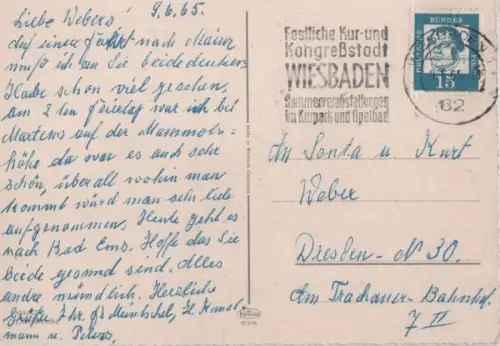 Liebe Webers! 9.6.65.
Auf einer Fahrt nach Mainz
muß ich an Sie beide denken
Habe schon viel gesehen,
am 2ten Feiertag war ich bei
Martens auf der Mammols-
höhe da war es auch sehr
schön, überall wohin man
kommt würd man sehr liebe
aufgenommen. Heute geht es
nach Bad Ems. Hoffe das Sie
Beide gesund sind, Alles
andre mündlich. Herzliche
Grüße Ihr
u. Peters.
Festliche Kur- und
Kongreßstadt
WIESBADEN
Sommerveranstaltungen
im Kurpark und Opelbad
DEUTSCHE BUNDESPOST
15
62
An Sonja u. Kurt
Weber
Dresden - N 30.
Am Trachauer-Bahnhof
7 II